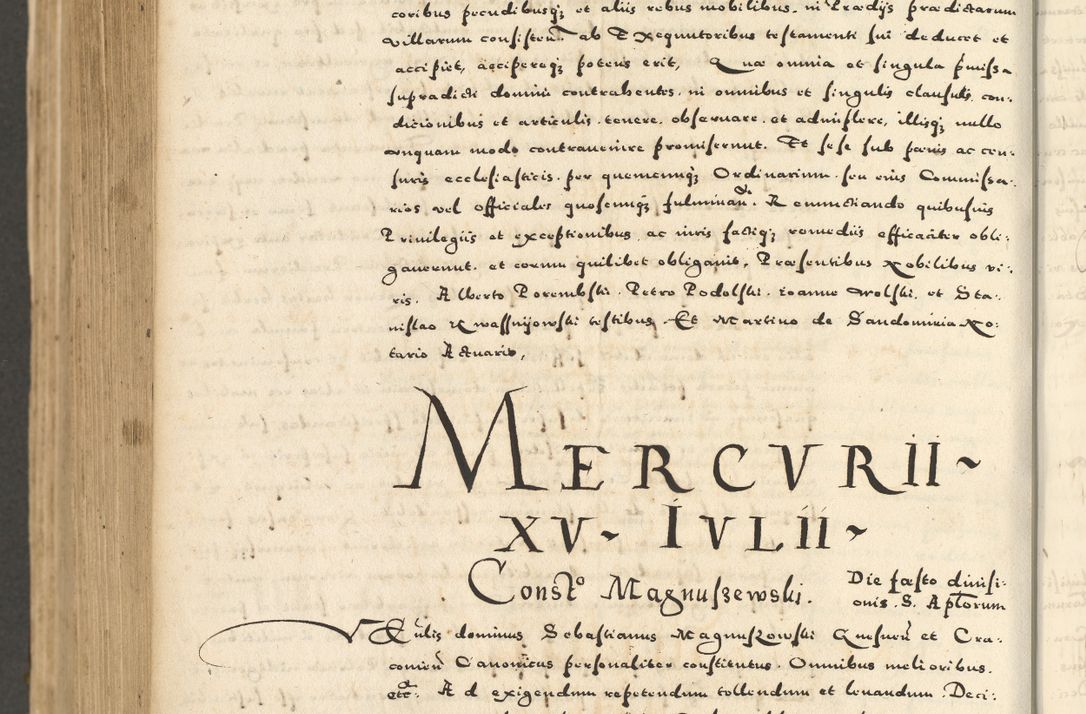 coribus pecudibusq; et aliis rebus mobilibus, in Prædijs prædictarum
villarum consisteñ ab Exequutoribus testamenti sui deducet et
accipiet, accipereq; potens erit, Quæ omnia et singula p̄missa
supradicti domini contrahentes, in omnibus et singulis clausulis, con-
dicionibus et articulis, tenere, observare, et adimplere, illisq; nullo
unquam modo contravenire promiserunt. Et sese sub pœnis ac cen-
suris ecclesiasticis, per quemcunq; Ordinarium, seu eius Commissa-
rios vel officiales quoscunq; fulminan. Renunctiando quibusuis
Privilegiis et exceptionibus, ac iuris factiq; remediis efficaciter obli-
gaverunt, et eorum quilibet obligavit, Præsentibus Nobilibus vi-
ris, Alberto Porembski, Petro Podolski, Ioanne Wolski, et Sta-
nislao Kwassnijowski testibus, Et Martino de Sandomiria No-
tario Actuario,
MERCVRII ~
XV ~ IVLII ~
Const.º Magnuszewski. Die festo divisi-
onis S. Ap̄torum
Eñlis dominus Sebastianus Magnuszowski Gnesneñ et Cra-
covieñ Canonicus personaliter constitutus, Omnibus melioribus,
etc. Ad exigendum repetendum tollendum et levandum, Deci-